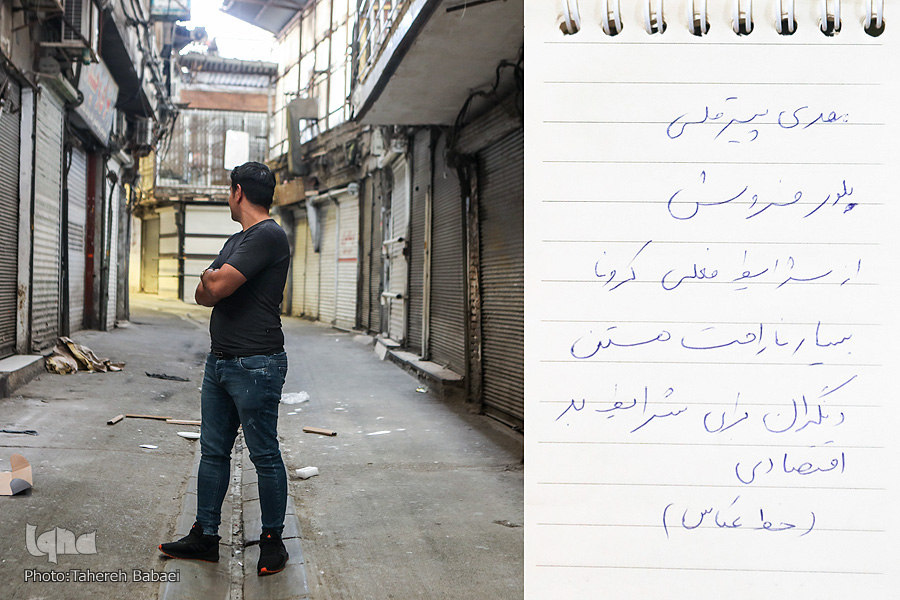 مهدی
بلور فروش
از شرایط فعلی کرونا
بسیار ناراحت هستن
و نگران برای شرایط بد
اقتصادی
(خط عکاس)
iqna
Photo:Tahereh Babaei